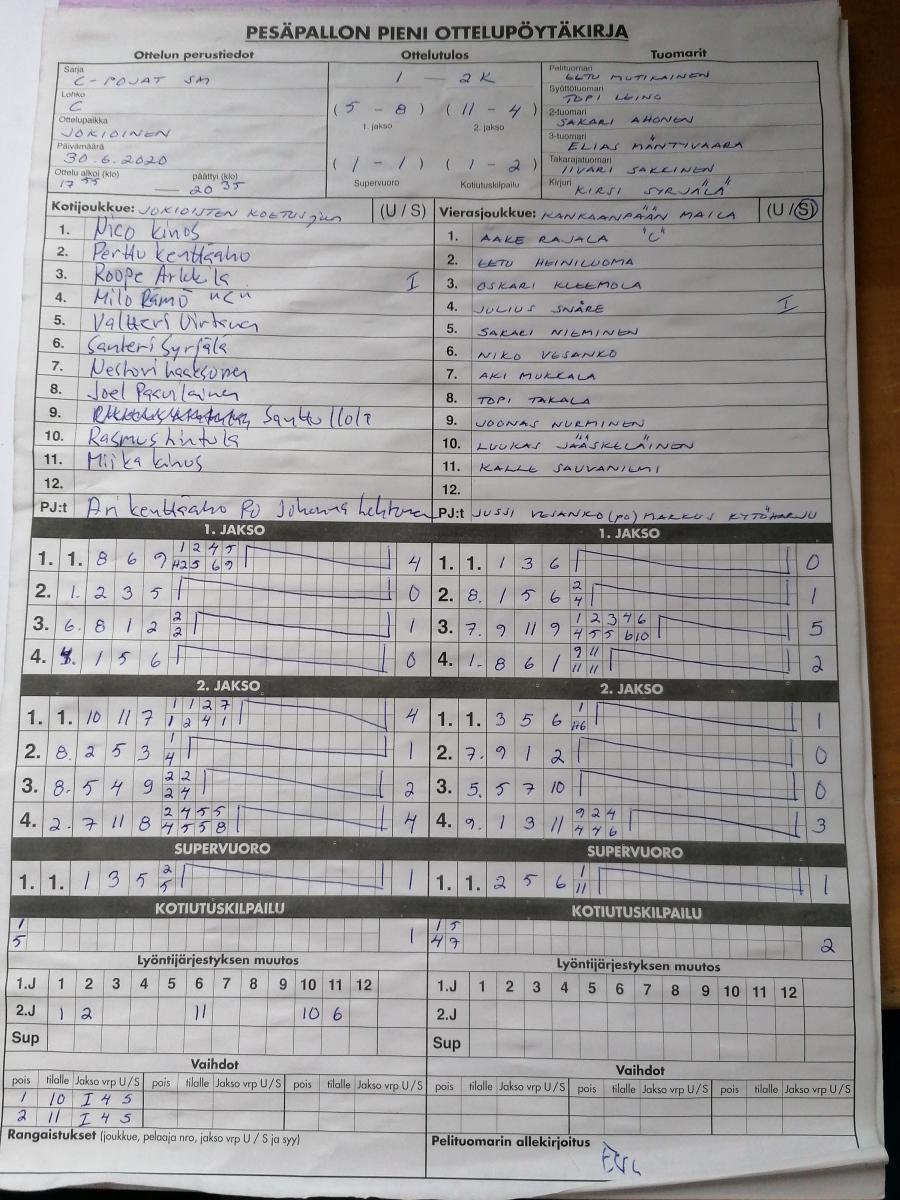 PESÄPALLON PIENI OTTELUPÖYTÄKIRJA
Ottelun perustiedot Ottelutulos Tuomarit
Sarja
C-POJAT SM
Lohko
C
Ottelupaikka
JOKIOINEN
Päivämäärä
30.6.2020
Ottelu alkoi (klo) päättyi (klo)
17 55 — 20 35
1 — 2K
(5 - 8) (11 - 4)
1. jakso 2. jakso
(1 - 1) (1 - 2)
Supervuoro Kotiutuskilpailu
Pelituomari
EETU MUTIKAINEN
Syöttötuomari
TOPI LEINO
2-tuomari
SAKARI AHONEN
3-tuomari
ELIAS MÄNTYVAARA
Takarajatuomari
IIVARI SAKKINEN
Kirjuri
KIRSI SYRJÄLÄ
Kotijoukkue: JOKIOISTEN KOETUS (U / S)
1. Nico kinos
2. Perttu kenttäaho
3. Roope Arkkila I
4. Milo Rämö "C"
5. Valtteri Virtanen
6. Santeri Syrjälä
7. Nestori haaksonen
8. Joel Pasvilainen
9. Santtu
10. Rasmus hintula
11. Miika kinos
12.
PJ:t Ari kenttäaho PO Johanna Lehtonen
Vierasjoukkue: KANKAANPÄÄN MAILA (U / S)
1. AAKE RAJALA "C"
2. EETU HEINILUOMA
3. OSKARI KLEEMOLA
4. JULIUS SNÅRE I
5. SAKARI NIEMINEN
6. NIKO VESANKO
7. AKI MUKKALA
8. TOPI TAKALA
9. JOONAS NURMINEN
10. LUUKAS JÄÄSKELÄINEN
11. KALLE SAUVANILMI
12.
PJ:t JUSSI VESANKO (PO) MARKUS KYTÖHARJU
1. JAKSO
1. 1. 8 6 9 1 2 4 5 4
H2 5 6 9
2. 1. 2 3 5 0
3. 6. 8 1 2 2 1
2
4. 1 5 6 0
1. JAKSO
1. 1. 1 3 6 0
2. 8. 1 5 6 2 1
4
3. 7. 9 11 9 1 2 3 4 6 5
4 5 5 6 10
4. 1. 8 6 1 9 11 2
11 11
2. JAKSO
1. 1. 10 11 7 1 1 2 7 4
1 2 4 1
2. 8. 2 5 3 1 1
4
3. 8. 5 4 9 2 2 2
2 4
4. 2. 7 11 8 2 4 5 5 4
4 5 5 8
2. JAKSO
1. 1. 3 5 6 1 1
H6
2. 7. 9 1 2 0
3. 5. 5 7 10 0
4. 9. 1 3 11 9 2 4 3
4 4 6
SUPERVUORO
1. 1. 1 3 5 2 1
5
SUPERVUORO
1. 1. 2 5 6 1 1
11
KOTIUTUSKILPAILU
1 1
5
KOTIUTUSKILPAILU
1 5 2
4 7
Lyöntijärjestyksen muutos
1.J 1 2 3 4 5 6 7 8 9 10 11 12
2.J 1 2 11 10 6
Sup
Lyöntijärjestyksen muutos
1.J 1 2 3 4 5 6 7 8 9 10 11 12
2.J
Sup
Vaihdot
pois tilalle Jakso vrp U / S pois tilalle Jakso vrp U / S pois tilalle Jakso vrp U / S
1 10 I 4 S
2 11 I 4 S
Vaihdot
pois tilalle Jakso vrp U / S pois tilalle Jakso vrp U / S pois tilalle Jakso vrp U / S
Rangaistukset (joukkue, pelaaja nro, jakso vrp U / S ja syy)
Pelituomarin allekirjoitus